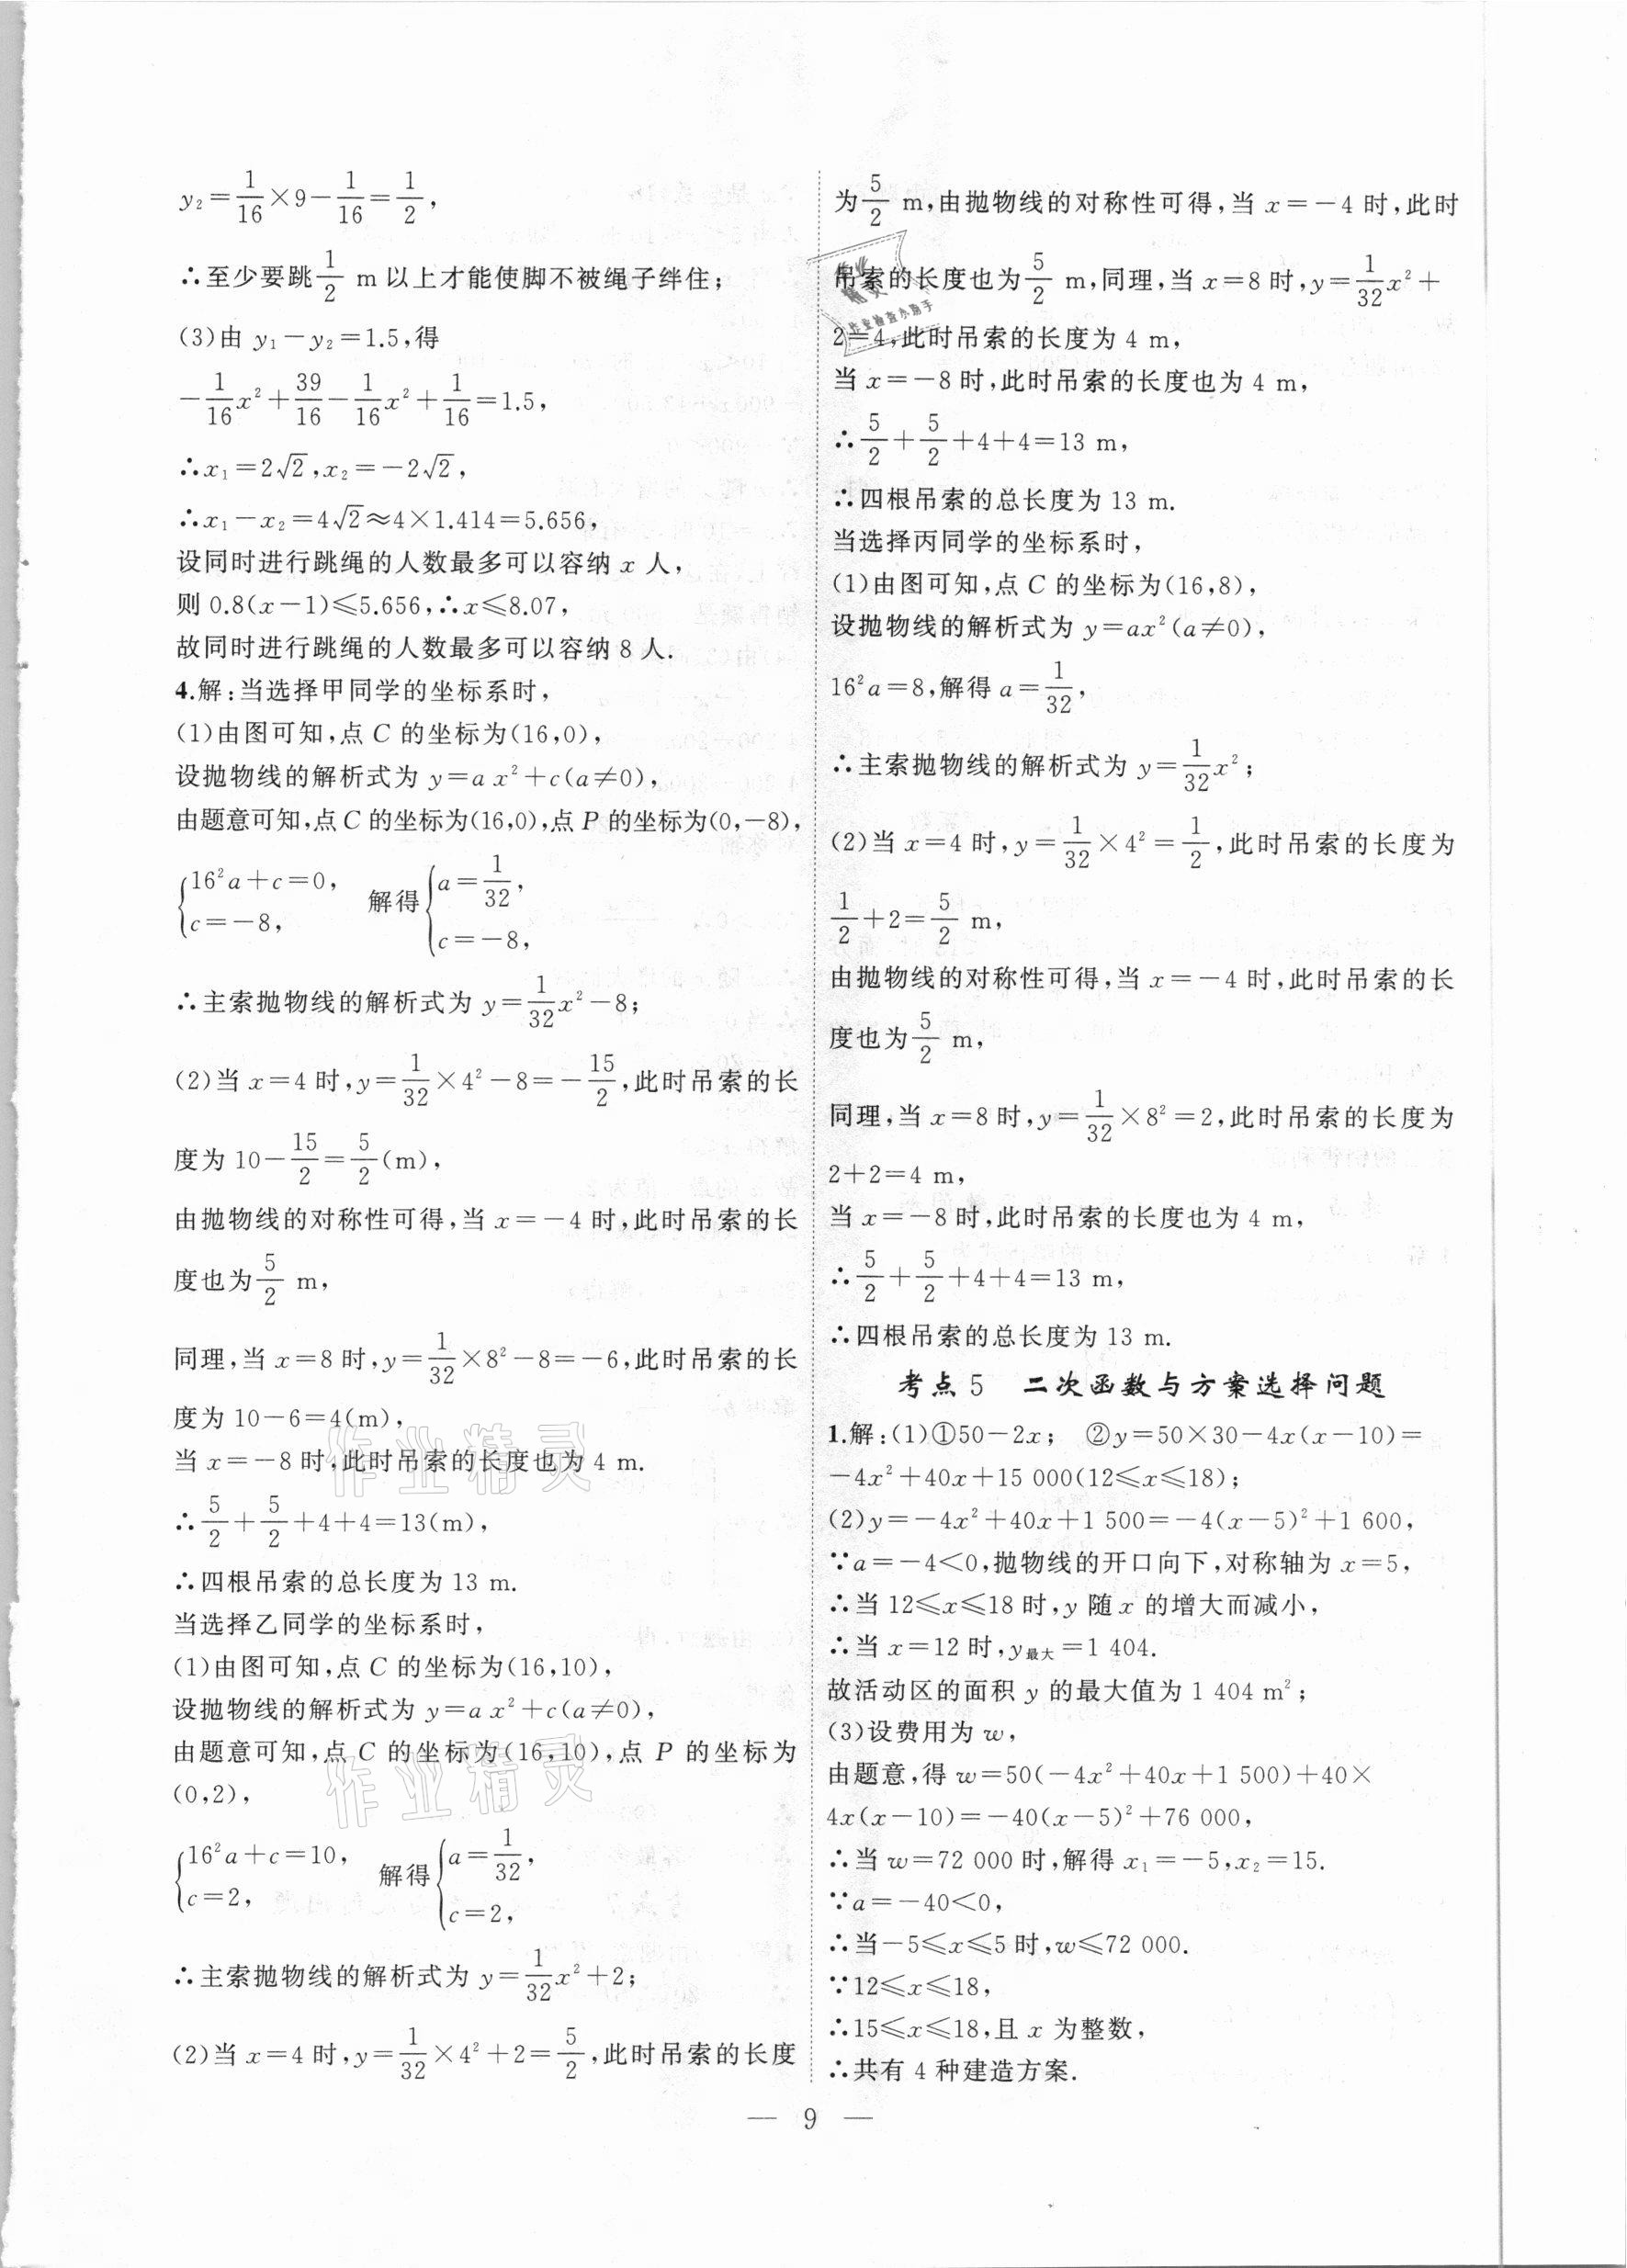 y₂=1/16×9-1/16=1/2,
∴至少要跳1/2 m以上才能使脚不被绳子绊住;
(3)由 y₁-y₂=1.5,得
-1/16x²+39/16-1/16x²+1/16=1.5,
∴x₁=2√2,x₂=-2√2,
∴x₁-x₂=4√2≈4×1.414=5.656,
设同时进行跳绳的人数最多可以容纳 x 人,
则 0.8(x-1)≤5.656,∴x≤8.07,
故同时进行跳绳的人数最多可以容纳 8 人.
4.解:当选择甲同学的坐标系时,
(1)由图可知,点 C 的坐标为(16,0),
设抛物线的解析式为 y=a x²+c(a≠0),
由题意可知,点 C 的坐标为(16,0),点 P 的坐标为(0,-8),
{16²a+c=0, c=-8, 解得{a=1/32, c=-8,
∴主索抛物线的解析式为 y=1/32x²-8;
(2)当 x=4 时,y=1/32×4²-8=-15/2,此时吊索的长
度为 10-15/2=5/2(m),
由抛物线的对称性可得,当 x=-4 时,此时吊索的长
度也为5/2 m,
同理,当 x=8 时,y=1/32×8²-8=-6,此时吊索的长
度为 10-6=4(m),
当 x=-8 时,此时吊索的长度也为 4 m.
∴5/2+5/2+4+4=13(m),
∴四根吊索的总长度为 13 m.
当选择乙同学的坐标系时,
(1)由图可知,点 C 的坐标为(16,10),
设抛物线的解析式为 y=a x²+c(a≠0),
由题意可知,点 C 的坐标为(16,10),点 P 的坐标为
(0,2),
{16²a+c=10, c=2, 解得{a=1/32, c=2,
∴主索抛物线的解析式为 y=1/32x²+2;
(2)当 x=4 时,y=1/32×4²+2=5/2,此时吊索的长度
为5/2 m,由抛物线的对称性可得,当 x=-4 时,此时
吊索的长度也为5/2 m,同理,当 x=8 时,y=1/32x²+
2=4,此时吊索的长度为 4 m,
当 x=-8 时,此时吊索的长度也为 4 m,
∴5/2+5/2+4+4=13 m,
∴四根吊索的总长度为 13 m.
当选择丙同学的坐标系时,
(1)由图可知,点 C 的坐标为(16,8),
设抛物线的解析式为 y=ax²(a≠0),
16²a=8,解得 a=1/32,
∴主索抛物线的解析式为 y=1/32x²;
(2)当 x=4 时,y=1/32×4²=1/2,此时吊索的长度为
1/2+2=5/2 m,
由抛物线的对称性可得,当 x=-4 时,此时吊索的长
度也为5/2 m,
同理,当 x=8 时,y=1/32×8²=2,此时吊索的长度为
2+2=4 m,
当 x=-8 时,此时吊索的长度也为 4 m,
∴5/2+5/2+4+4=13 m,
∴四根吊索的总长度为 13 m.
考点 5 二次函数与方案选择问题
1.解:(1)①50-2x; ②y=50×30-4x(x-10)=
-4x²+40x+15 000(12≤x≤18);
(2)y=-4x²+40x+1 500=-4(x-5)²+1 600,
∵a=-4<0,抛物线的开口向下,对称轴为 x=5,
∴当 12≤x≤18 时,y 随 x 的增大而减小,
∴当 x=12 时,y最大=1 404.
故活动区的面积 y 的最大值为 1 404 m²;
(3)设费用为 w,
由题意,得 w=50(-4x²+40x+1 500)+40×
4x(x-10)=-40(x-5)²+76 000,
∴当 w=72 000 时,解得 x₁=-5,x₂=15.
∵a=-40<0,
∴当-5≤x≤5 时,w≤72 000.
∵12≤x≤18,
∴15≤x≤18,且 x 为整数,
∴共有 4 种建造方案.
— 9 —
作业精灵
作业精灵
作业检查小助手